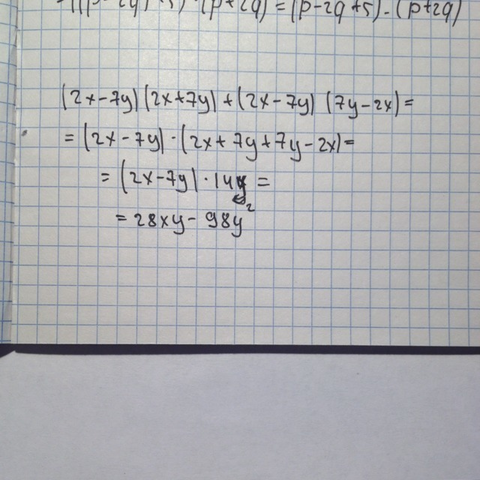 (p-2q+5)·(p+2q) = (p-2q+5)·(p+2q)
(2x-7y)(2x+7y)+(2x-7y)(7y-2x)=
=(2x-7y)·(2x+7y+7y-2x)=
=(2x-7y)·14y=
=28xy-98y²